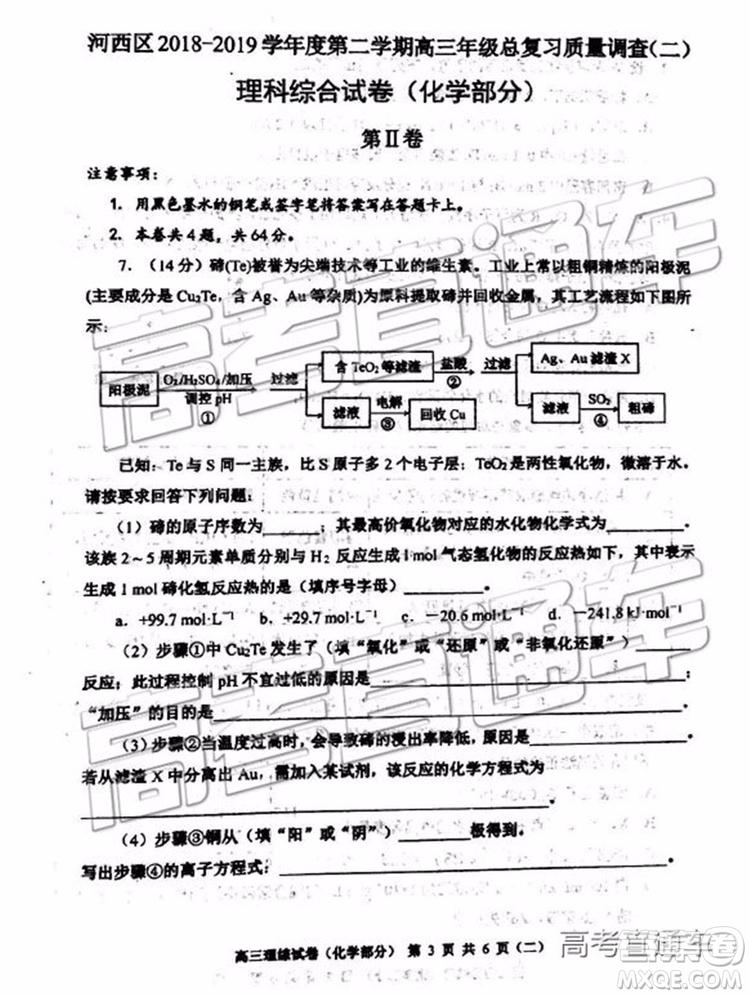 河西区2018-2019学年度第二学期高三年级总复习质量调查(二)
理科综合试卷（化学部分）
第Ⅱ卷
注意事项：
1. 用黑色墨水的钢笔或签字笔将答案写在答题卡上。
2. 本卷共4题，共64分。
7.（14分）碲(Te)被誉为尖端技术等工业的维生素。工业上常以粗铜精炼的阳极泥
(主要成分是Cu₂Te，含Ag、Au等杂质)为原料提取碲并回收金属，其工艺流程如下图所
示：
阳极泥 O₂/H₂SO₄/加压 调控pH ① 过滤 含TeO₂等滤渣 盐酸 ② 过滤 Ag、Au滤渣X
滤液 电解 ③ 回收Cu 滤液 SO₂ ④ 粗碲
已知：Te与S同一主族，比S原子多2个电子层；TeO₂是两性氧化物，微溶于水。
请按要求回答下列问题：
（1）碲的原子序数为______；其最高价氧化物对应的水化物化学式为______。
该族2～5周期元素单质分别与H₂反应生成1mol气态氢化物的反应热如下，其中表示
生成1mol碲化氢反应热的是（填序号字母）______。
a. +99.7 mol·L⁻¹ b. +29.7 mol·L⁻¹ c. －20.6 mol·L⁻¹ d. －241.8 kJ·mol⁻¹
（2）步骤①中Cu₂Te发生了（填“氧化”或“还原”或“非氧化还原”）______
反应；此过程控制pH不宜过低的原因是______；
“加压”的目的是______
（3）步骤②当温度过高时，会导致碲的浸出率降低，原因是______
若从滤渣X中分离出Au，需加入某试剂，该反应的化学方程式为
______。
（4）步骤③铜从（填“阳”或“阴”）______极得到。
写出步骤④的离子方程式：______。
高三理综试卷（化学部分） 第3页共6页（二）
高考直通车
高考直通车
高考直通车
答案圈
MXQE.COM